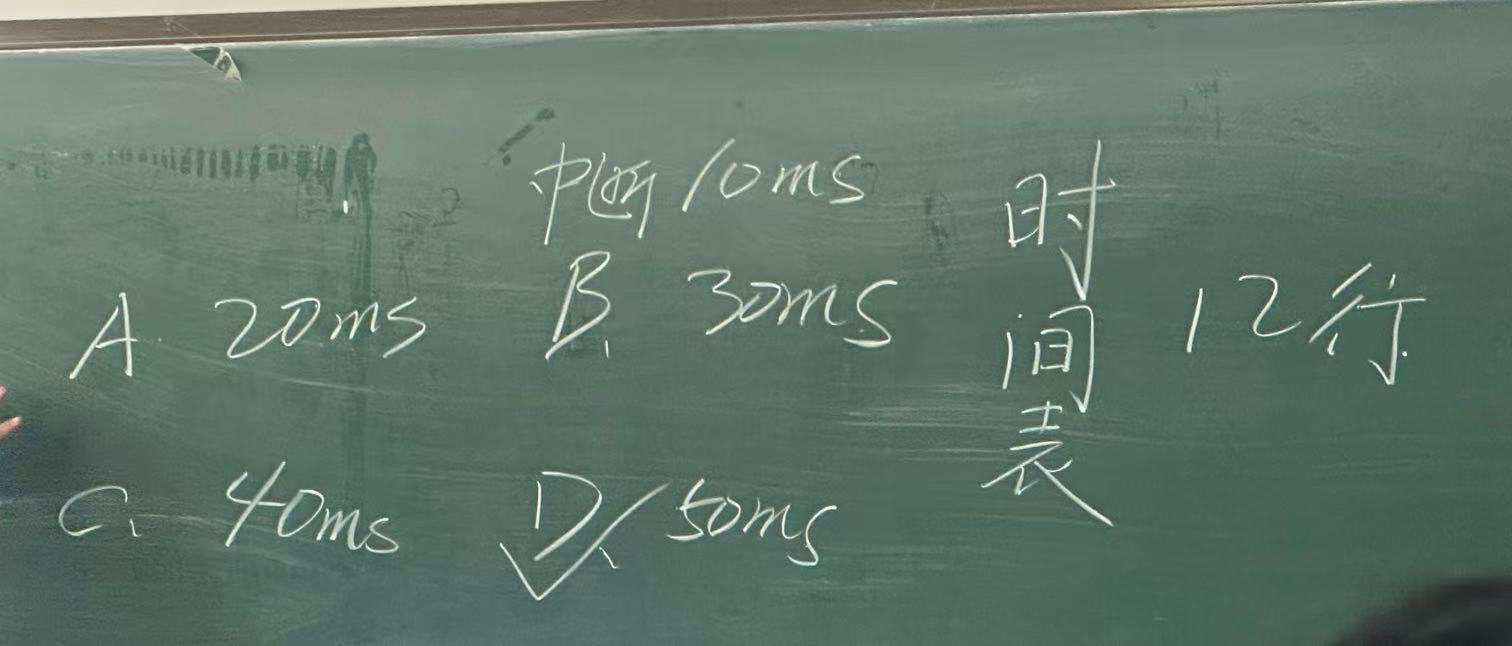 中断10ms
A. 20ms B. 30ms
C. 40ms D. 50ms
时间表
12行